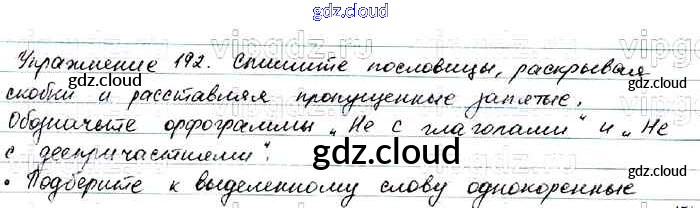 gdz.cloud
Упражнение 192. Спишите пословицы, раскрывая
gdz.cloud
скобки и расставляя пропущенные запятые.
gdz.cloud
Обозначьте орфограммы „Не с глаголами“ и „Не
с деепричастиями“.
gdz.cloud
• Подберите к выделенному слову однокоренные